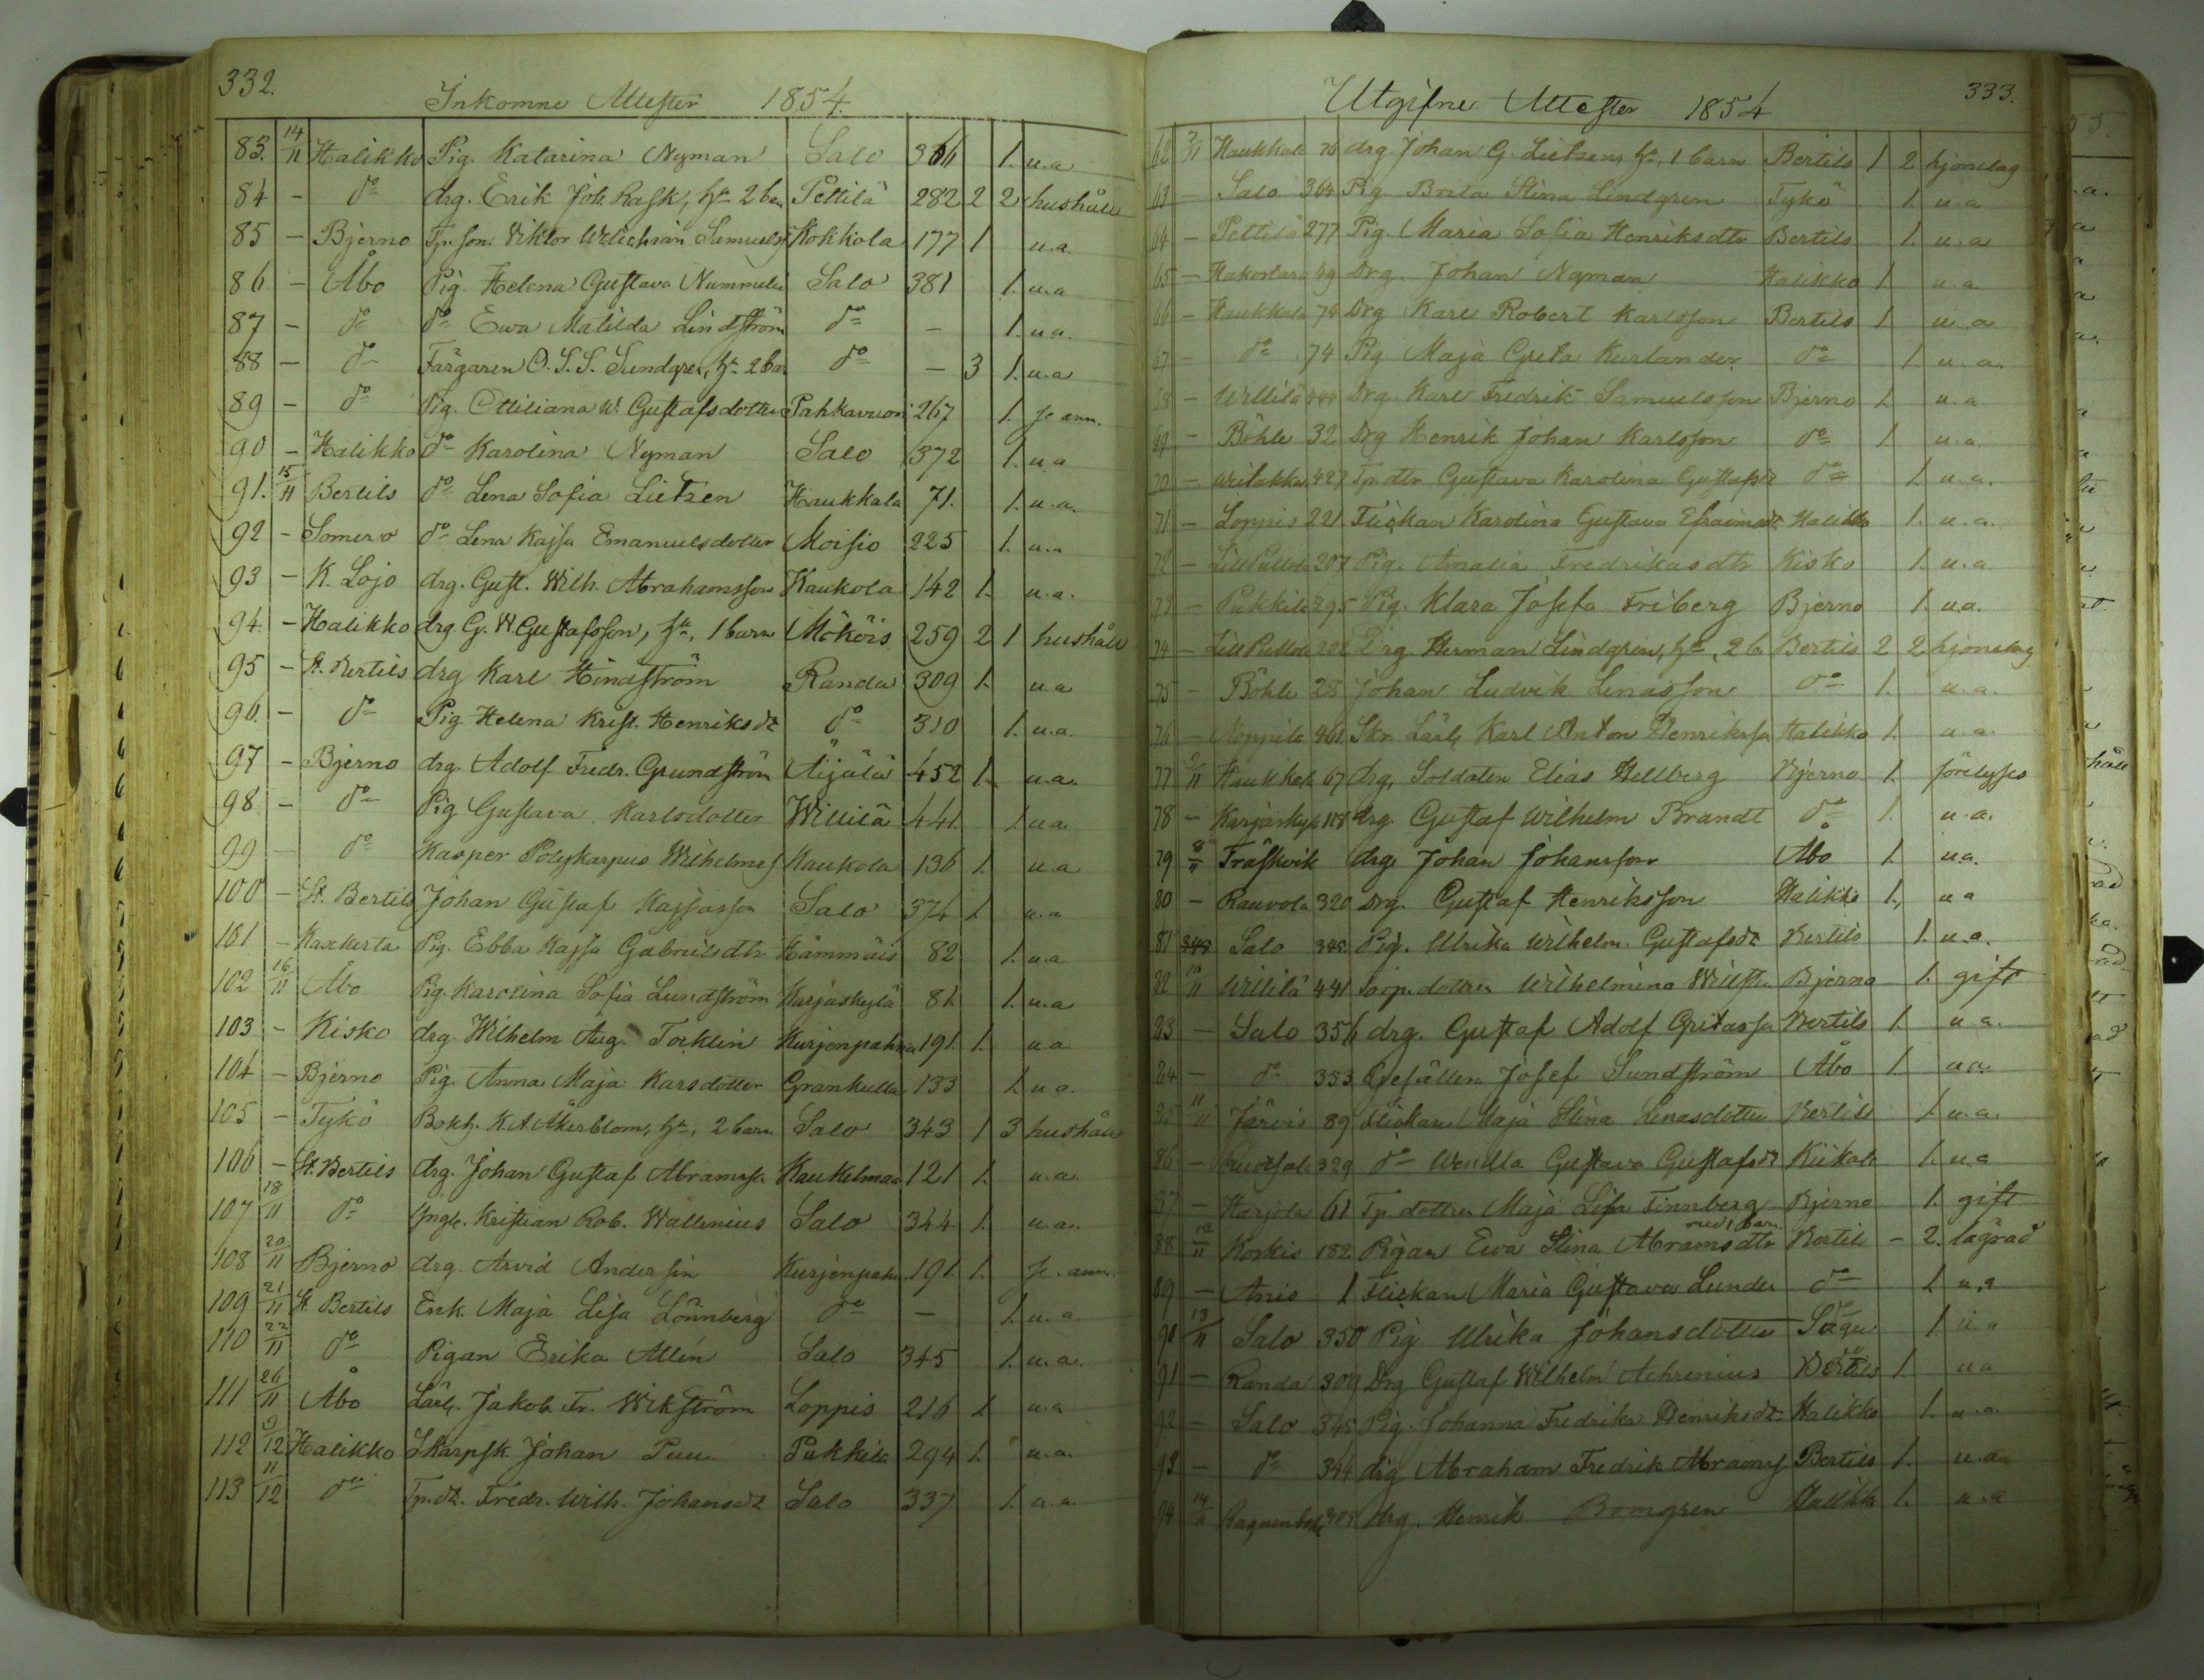 332.
Inkomne Attester 1854.
83. 14/11 Halikko Pig. Katarina Nyman Salo 366 1. u.a
84 - do drg. Erik Joh. Rask, hu 2 ba Pettilä 282 2 2 hushåll
85 - Bjerno Tp. son Viktor Samuels Kokkola 177 1 u.a.
86 - Åbo Pig. Helena Gustava Nummelin Salo 381 1. u.a
87 - do do Ewa Matilda Lindström do - 1. u.a.
88 - do Färgaren O. S. S. Sundgren, hu 2 bar do - 3 1. u.a
89 - do Pig. Ottiliana W. Gustafsdotter Pahkavuori 267 1. se ann.
90 - Halikko do Karolina Nyman Salo 372 1. u.a
91. 15/11 Bertils do Lena Sofia Lietzen Haukkala 71. 1. u.a.
92 - Somero do Lena Kajsa Emanuelsdotter Moisio 225 1. u.a
93 - K. Lojo drg. Gust. Wilh. Abrahamsson Kaukola 142 1. u.a.
94. - Halikko drg G. W Gustafsson, hu, 1 barn Mököis 259 2 1 hushåll
95 - St. Bertils drg Karl Hindström Randa 309 1. u.a
96. - do Pig. Helena Krist. Henriksdt do 310 1. u.a.
97 - Bjerno drg. Adolf Fredr. Grundström Äijälä 452 1. u.a.
98 - do Pig Gustava Karlsdotter Willilä 441. 1. u.a.
99 - do Kasper Polykarpus Wilhelms Kaukola 136 1. u.a
100 - St. Bertils Johan Gustaf Kajsasson Salo 374 1. u.a
101 - Kaxkerta Pig. Ebba Kajsa Gabrielsdtr Hämmäis 82 1. u.a
102 16/11 Åbo Pig. Karolina Sofia Lundström Karjaskylä 81. 1. u.a
103 - Kisko drg. Wilhelm Aug. Torklin Kurjenpahna 191. 1. u.a
104 - Bjerno Pig. Anna Maja Karsdotter Grankulla 133 1. u.a.
105 - Tykö Bokh. K. A. Åkerblom, hu, 2 barn Salo 343 1 3 hushåll
106 - St. Bertils drg. Johan Gustaf Abramss Kaukelmaa 121 1. u.a.
107 18/11 do Yngl. Kristian Rob. Wallenius Salo 344 1. u.a.
108 20/11 Bjerno drg. Arvid Andersin Kurjenpahn. 191. 1. se. ann.
109 21/11 St. Bertils Enk. Maja Lisa Lönnberg do - 1. u.a.
110 22/11 do Pigan Erika Allin Salo 345 1. u.a.
111 26/11 Åbo Lärl. Jakob Fr. Wikström Loppis 216 1 u.a
112 9/12 Halikko Skarpsk. Johan Puu Pukkila 294 1. u.a.
113 11/12 do Tp. dt. Fredr. Wilh. Johansdt Salo 337 1. u.a.
333.
Utgifne Attester 1854
62 7/11 Haukkala 76 drg. Johan G. Lietzen, hu, 1 barn Bertils 1 2 hjonelag
63 - Salo 364 Pig Brita Stina Lindgren Tykö 1. u.a
64 - Pettilä 277 Pig. Maria Sofia Henriksdtr Bertils 1. u.a
65 - 49 Drg. Johan Nyman Halikko 1 u.a.
66 - Haukkala 74 Drg Karl Robert Karlsson Bertils 1 u.a
67 - do 74 Pig. Maja Greta Kurlander do 1 u.a.
68 - Willilä 444 Drg. Karl Fredrik Samuelsson Bjerno 1 u.a
69 - Böhle 32 Drg Henrik Johan Karlsson do 1 u.a.
70 - 427 Tp. dtr Gustava Karolina Gustafsdt do 1. u.a.
71 - Loppis 221 Flickan Karolina Gustava Efraimsdt. Halikko 1. u.a.
72 - 207 Pig. Amalia Fredrikasdtr Kisko 1. u.a
73 - Pukkila 295 Pig. Klara Josefa Friberg Bjerno 1. u.a.
74 - Drg. Herman Lindgren, hu, 2 b Bertils 2 2 hjonelag
75 - Böhle 28 Johan Ludvik Linasson do 1. u.a.
76 - 461 Skr. Lärl. Karl Anton Henrikss Halikko 1. u.a.
77 9/11 Haukkala 67 drg. Soldaten Elias Hellberg Bjerno 1. förelyses
78 - Karjaskyl 118 drg. Gustaf Wilhelm Brandt do 1. u.a.
79 8/11 Träskvik drg. Johan Johansson Åbo 1. u.a.
80 - Rauvola 320 Drg. Gustaf Henriksson Halikko 1. u.a
81 Salo 345. Pig. Ulrika Wilhelm. Gustafsdt Bertils 1. u.a.
82 10/11 Willilä 441 Torp. dottren Wilhelmina Bjerno 1. gift
83 - Salo 356 drg. Gustaf Adolf Gretasso Bertils 1. u.a.
84 - do 353 Gesällen Josef Sundström Åbo 1. u.a.
85 11/11 Järvis 89 Flickan Maja Stina Linasdotter Bertils 1 u.a.
86 - Ruotsala 329 do Wendla Gustava Gustafsdt Kiikala 1. u.a
87 - Harjola 61 Tp. dottren Maja Lisa Finnberg Bjerno 1. gift
88 12/11 Koskis 182 Pigan Ewa Stina Abramsdtr med 1 barn. Bertils - 2. lägrad
89 - Anis 1 Flickan Maria Gustava Lunder do 1 u.a
90 13/11 Salo 350 Pig Ulrika Johansdotter Sagu 1 u.a
91 - Randa 309 Drg Gustaf Wilhelm Achrenius Bertils 1. u.a
92 - Salo 345 Pig. Johanna Fredrika Henriksdt Halikko 1. u.a.
93 - do 344 drg Abraham Fredrik Abrams Bertils 1. u.a.
94 14/11 drg. Henrik Bomgren Halikko 1. u.a